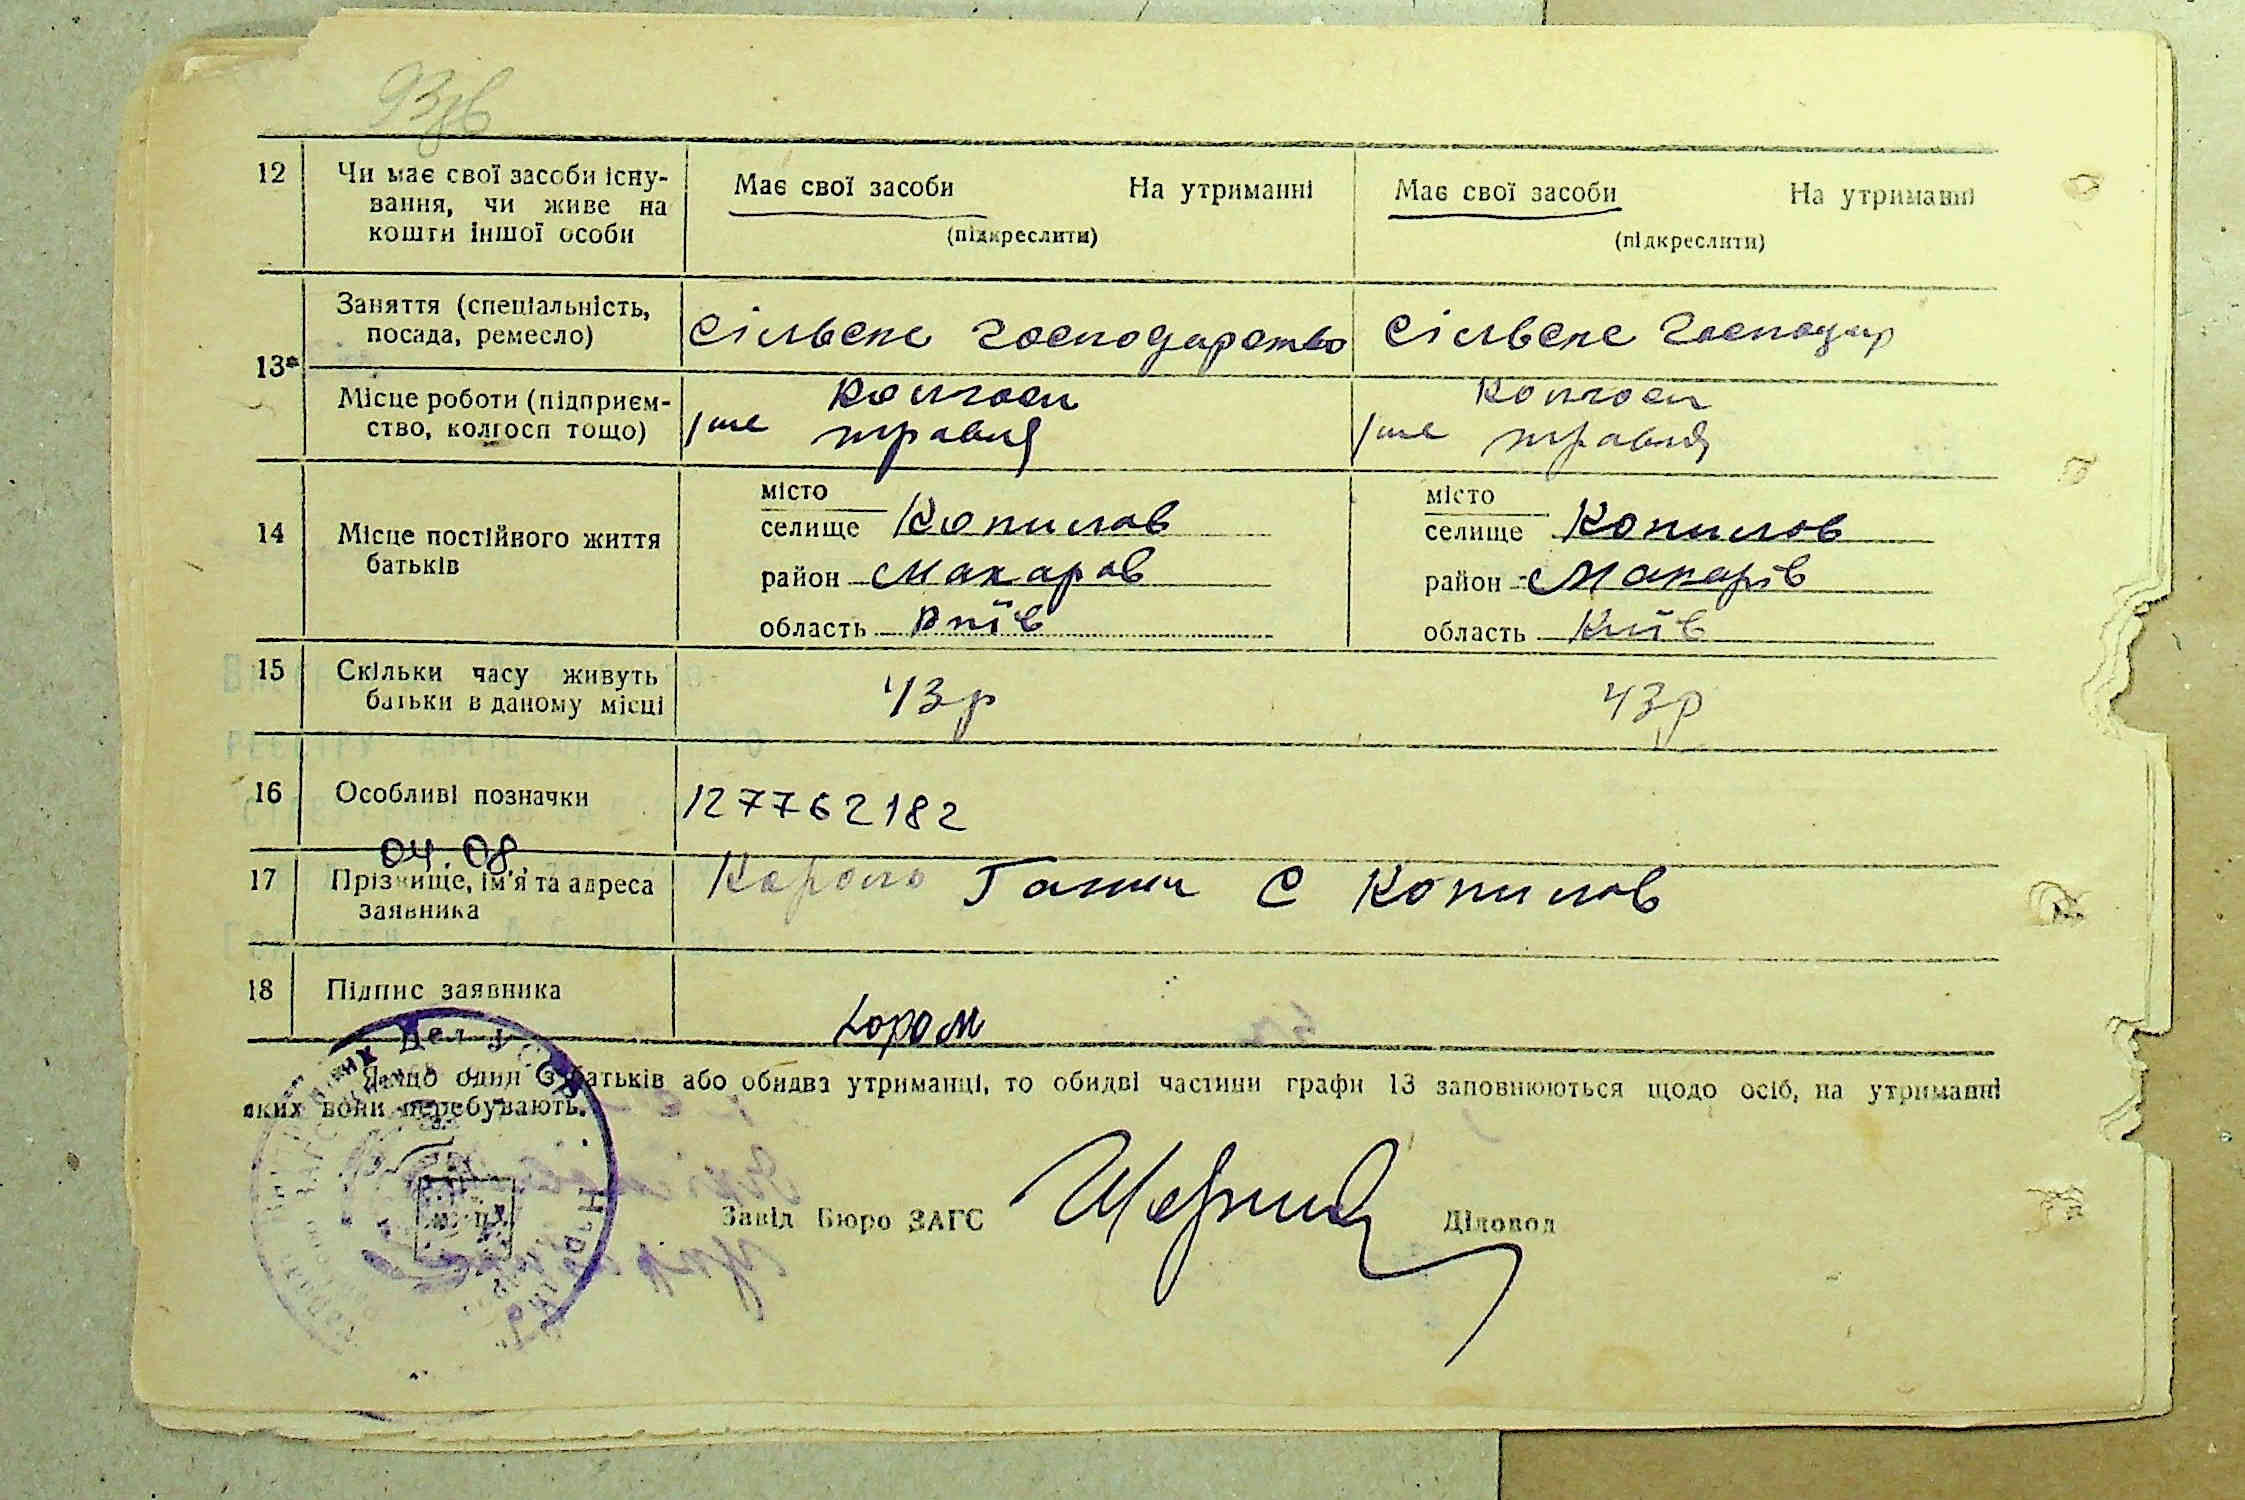 93зв
12 Чи має свої засоби існу-
вання, чи живе на
кошти іншої особи
Має свої засоби На утриманні
(підкреслити)
Має свої засоби На утриманні
(підкреслити)
13* Заняття (спеціальність,
посада, ремесло)
Сільське господарство
Сільське господар
Місце роботи (підприєм-
ство, колгосп тощо)
Колгосп
1ше травня
Колгосп
1ше травня
14 Місце постійного життя
батьків
місто
селище Копилов
район Макаров
область Київ
місто
селище Копилов
район Макарів
область Київ
15 Скільки часу живуть
батьки в даному місці
43р
43р
16 Особливі позначки
127762182
04.08.
17 Прізвище, ім'я та адреса
заявника
Король Ганни С Копилов
18 Підпис заявника
Якщо один з батьків або обидва утриманці, то обидві частини графи 13 заповнюються щодо осіб, на утриманні
яких вони перебувають.
Завід Бюро ЗАГС
Діловод